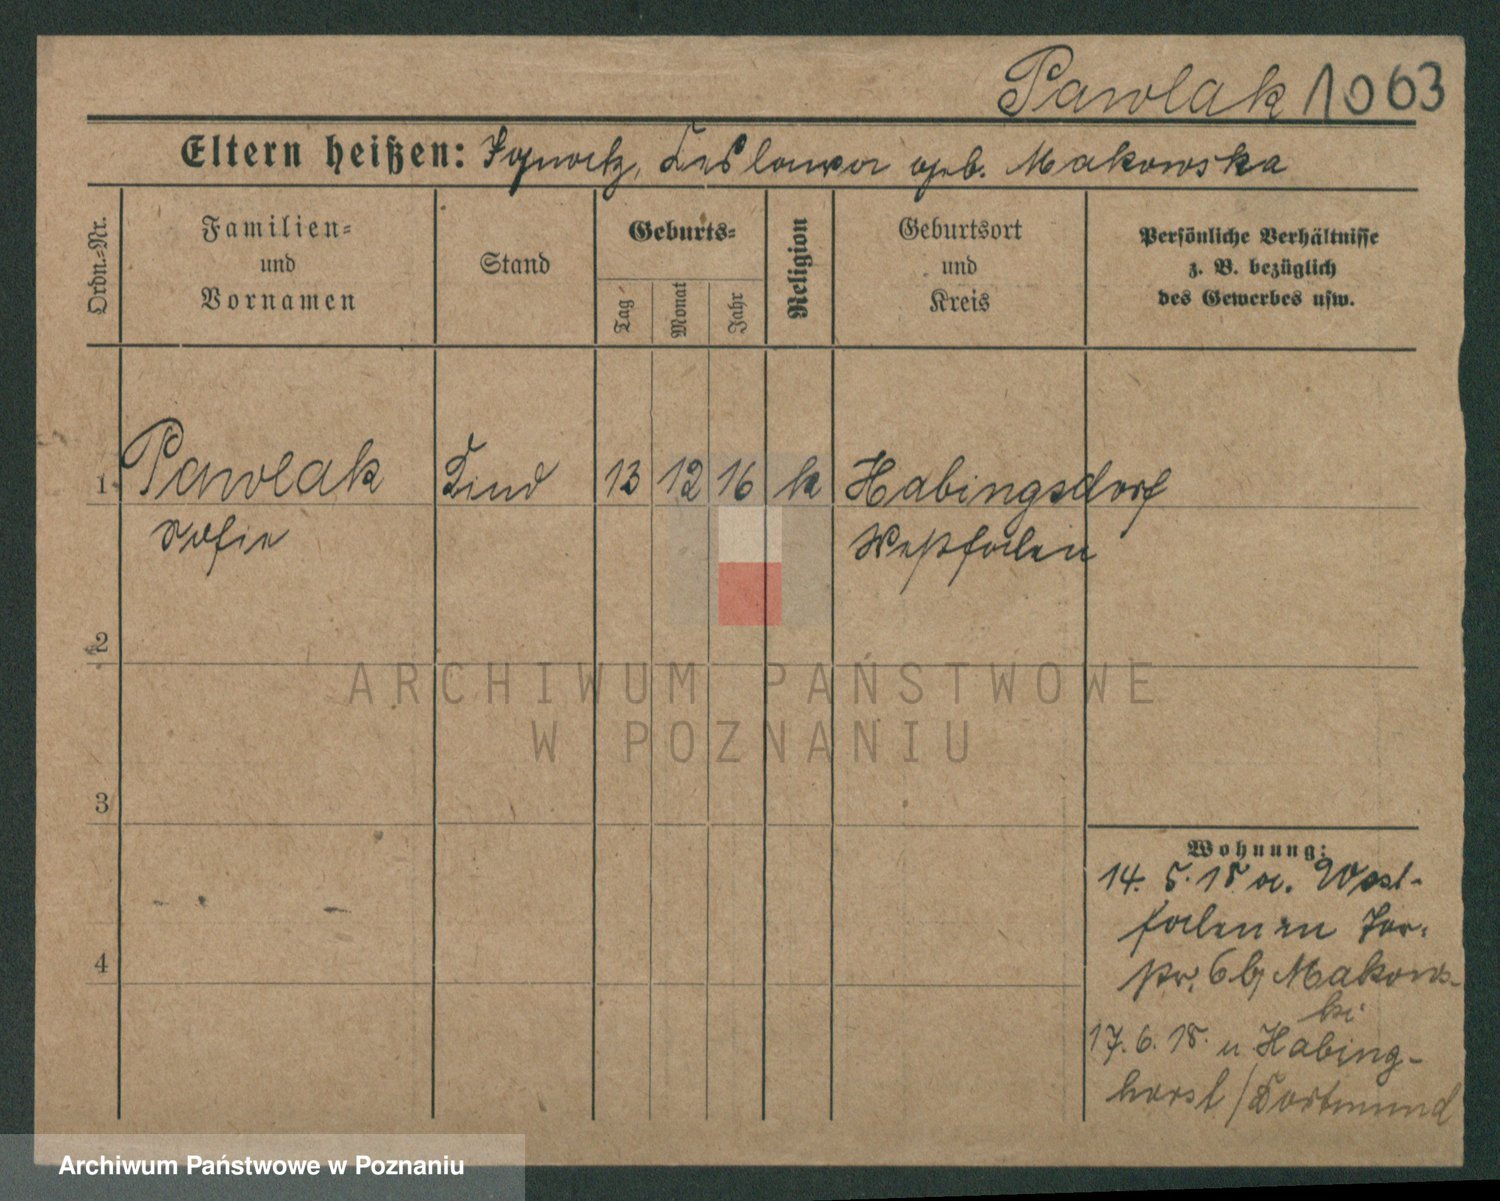 Pawlak 1063
Eltern heißen: Ignatz, geb. Makowska
Ordn.-Nr.
Familien-
und
Vornamen
Stand
Geburts-
Tag
Monat
Jahr
Religion
Geburtsort
und
Kreis
Persönliche Verhältnisse
z. B. bezüglich
des Gewerbes usw.
1 Pawlak Kind 13 12 16 k Habingsdorf
Sofie Westfalen
2
3
4
Wohnung:
14. 5. 18 a. West-
falen in
6 b/ Makows-
ki
17. 6. 18. n Habing-
horst / Dortmund
ARCHIWUM PAŃSTWOWE
W POZNANIU
Archiwum Państwowe w Poznaniu